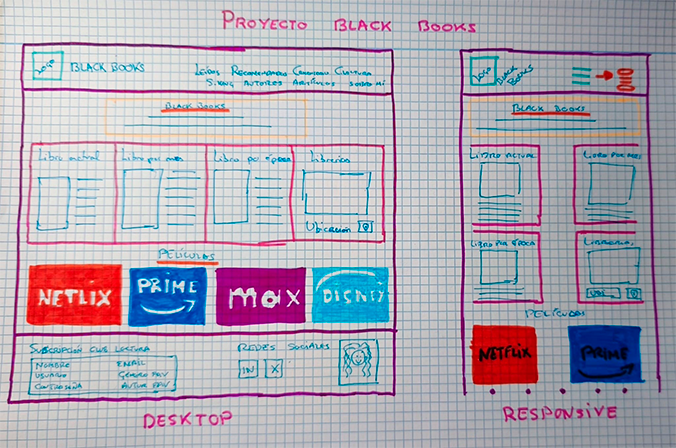 PROYECTO BLACK BOOKS
LOGO BLACK BOOKS
LEIDOS RECOMENDADO CALENDARIO CULTURA
AUTORES ARTÍCULOS SOBRE MÍ
BLACK BOOKS
Libro actual
Libro por mes
Libro por época
Librerías
Ubicación
PELÍCULAS
NETFLIX
PRIME
max
DISNEY
SUBSCRIPCIÓN CLUB LECTURA
NOMBRE EMAIL
USUARIO GÉNERO FAV
CONTRASEÑA AUTOR FAV
REDES SOCIALES
IN X
DESKTOP
LOGO BLACK BOOKS
BLACK BOOKS
LIBRO ACTUAL
LIBRO POR MES
LIBRO POR ÉPOCA
PELÍCULAS
NETFLIX
PRIME
RESPONSIVE